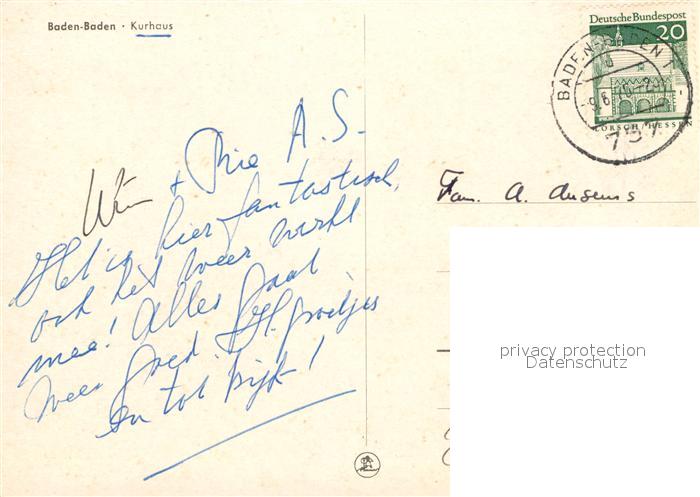 Baden-Baden · Kurhaus
Deutsche Bundespost
20
LORSCH/HESSEN
BADEN-BADEN 1
-9.6.70-23
757
Wim + Mie A.S.
Het is hier fantastisch,
ook het weer werkt
mee! Alles gaat
weer goed. Ht. groetjes
en tot kijk!
Fam. A. Ansems
privacy protection
Datenschutz